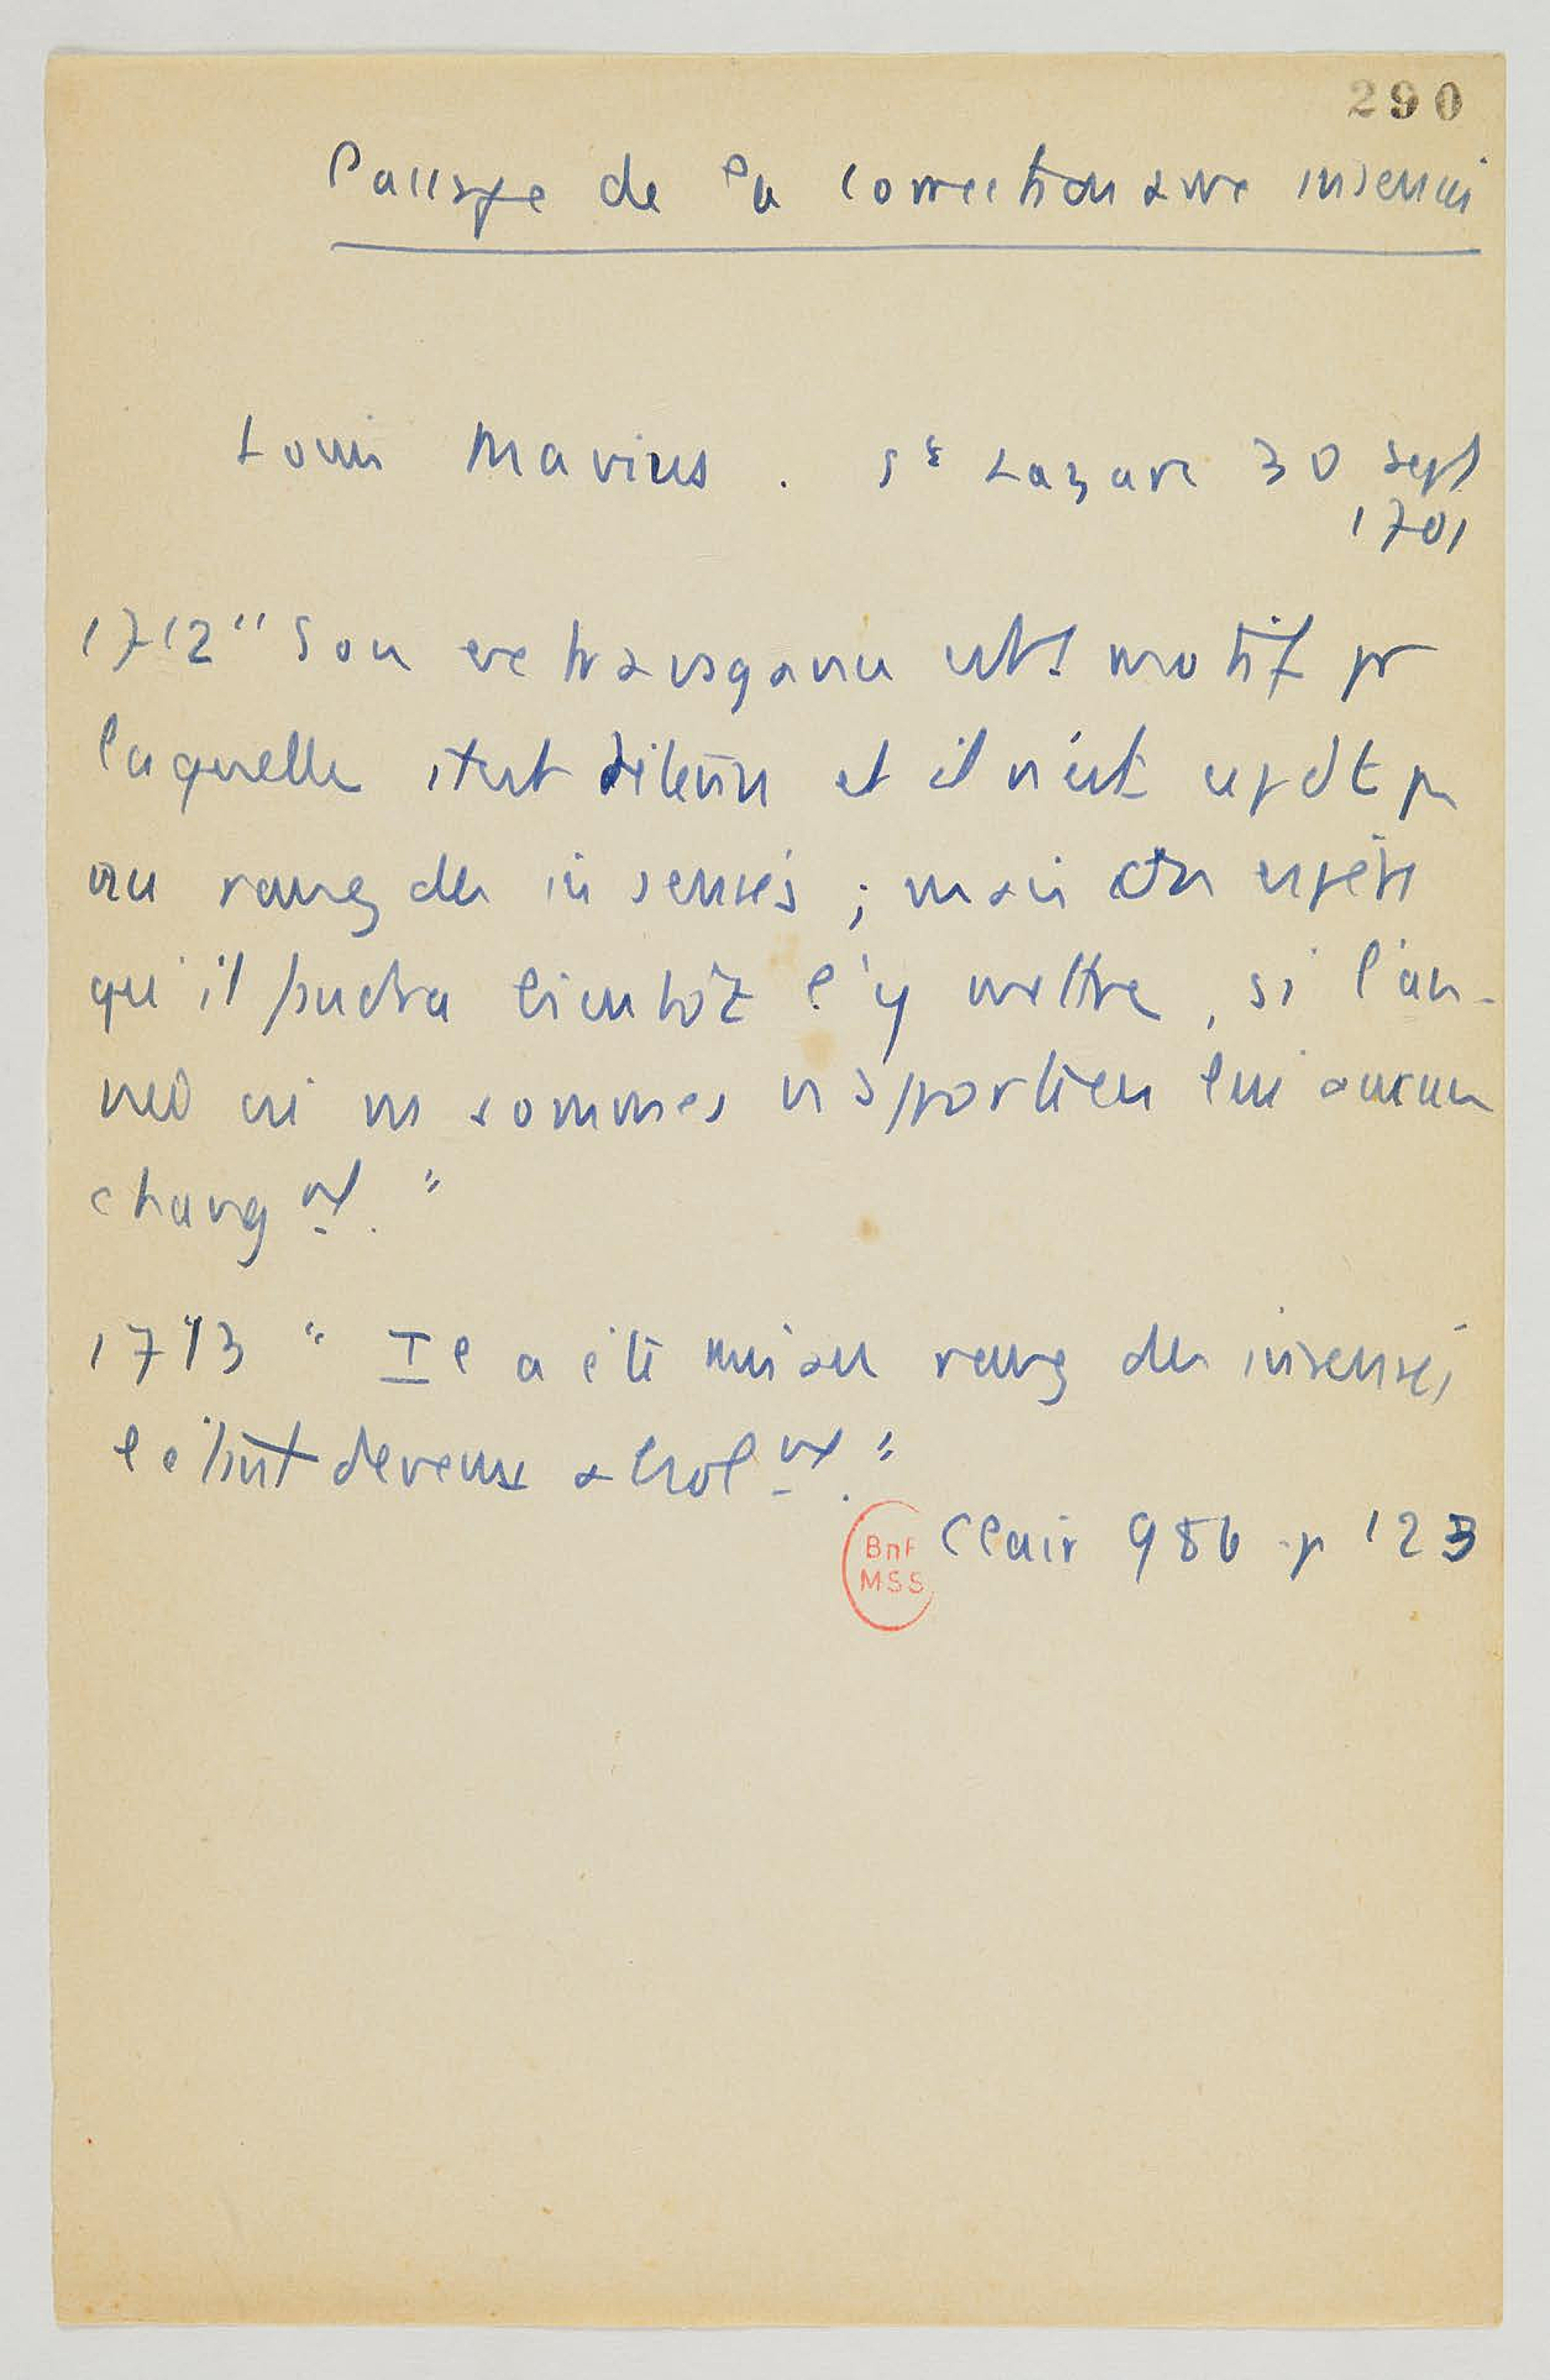 290
Passage de la correction aux insensés
Louis Marius. St Lazare 30 sept
1701
1712 " Son extravagance est le motif pr
laquelle il est détenu et il n'est cepdt pas
au rang des insensés ; mais on espère
qu'il faudra bientôt l'y mettre, si l'an-
née où ns sommes n'apporte en lui aucun
changt. "
1713 " Il a été mis au rang des insensés
l'étant devenu absolt. "
Clair 986 p 123
BnF
MSS